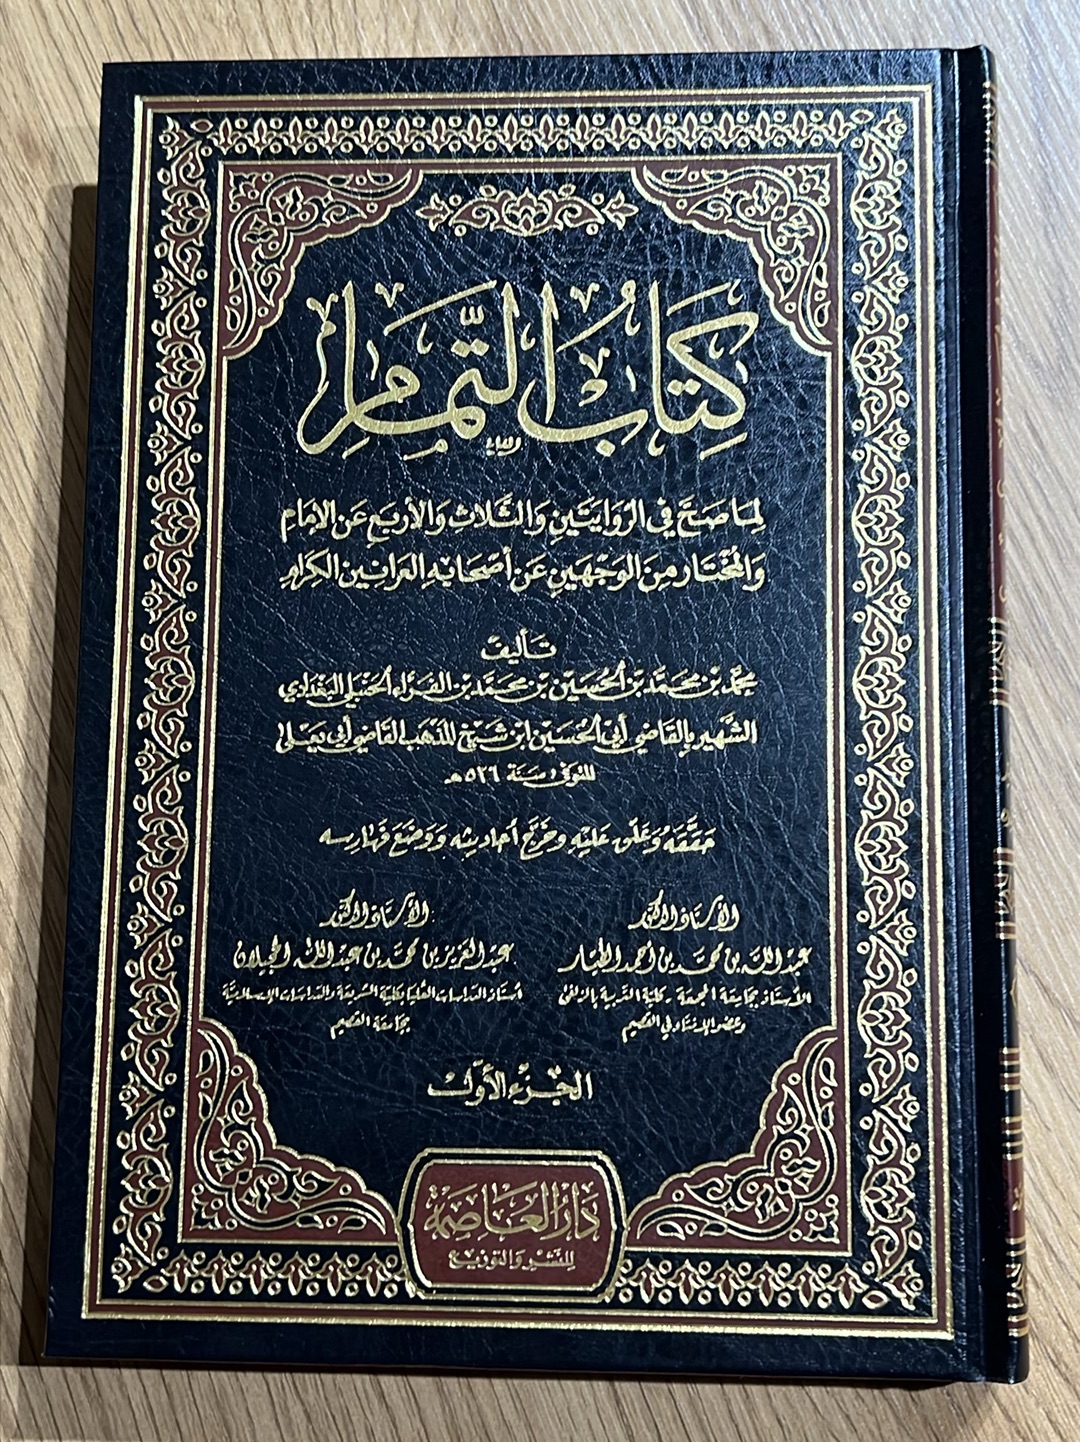 كِتَابُ التَّمَامِ
لِمَا صَحَّ فِي الرِّوَايَتَيْنِ وَالثَّلَاثِ وَالأَرْبَعِ عَنِ الإِمَامِ
وَالمُخْتَارِ مِنَ الوَجْهَيْنِ عَنْ أَصْحَابِهِ العَرَانِينِ الكِرَامِ
تَأليف
محمّد بن محمَّد بن الحُسَين بن محمَّد بن الفَرَّاء الحنبلي البَغْدَادي
الشَّهير بالقَاضي أبي الحُسَين ابن شَيْخ المذهَب القَاضي أبي يَعْلى
المتوفى سَنة ٥٢٦ هـ
حَقَّقَهُ وَعَلَّقَ عَلَيْهِ وَخَرَّجَ أحَاديثه وَوَضَعَ فَهَارِسه
الأستاذ الدكتور
عبد الله بن محمّد بن أحمد الطيّار
الأستاذ بجَامعَة المجمعَة - كليَّة التربيَة بالزلفي
وعضو الإفتاء في القصيم
الأستاذ الدكتور
عبد العزيز بن محمَّد بن عبد الله الحجيلان
أستاذ الدراسَات العُليَا بكليَّة الشريعَة والدراسَات الإسلاميَّة
بجَامعَة القصيم
الجُزء الأوّل
دَارُ العَاصِمَة
للنشر والتوزيع